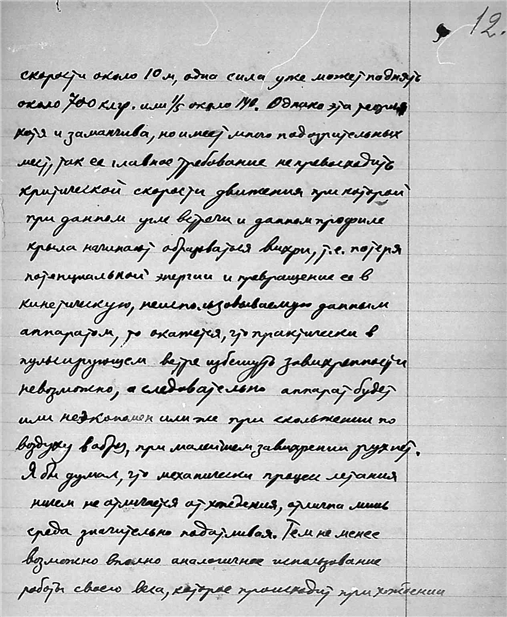 12.
скорости около 10 м, одна сила уже может поднять
около 700 клгр. или 1/5 около 140. Однако эта теория
хотя и заманчива, но имеет много подозрительных
мест, так ее главное требование не превосходить
критической скорости движения при которой
при данном угле встречи и данном профиле
крыла начинают образоваться вихри, т.е. потеря
потенциальной энергии и превращение ее в
кинетическую, неиспользовываемую данным
аппаратом, то окажется, что практически в
пульсирующем ветре избегнуть завихренности
невозможно, а следовательно аппарат будет
или неэкономен или же при скольжении по
воздуху в обрез, при малейшем завихрении рухнет.
Я бы думал, что механически процес летания
ничем не отличается от хождения, отлична лишь
среда значительно податливая. Тем не менее
возможно вполно аналогичное использование
работы своего веса, которое происходит при хождении